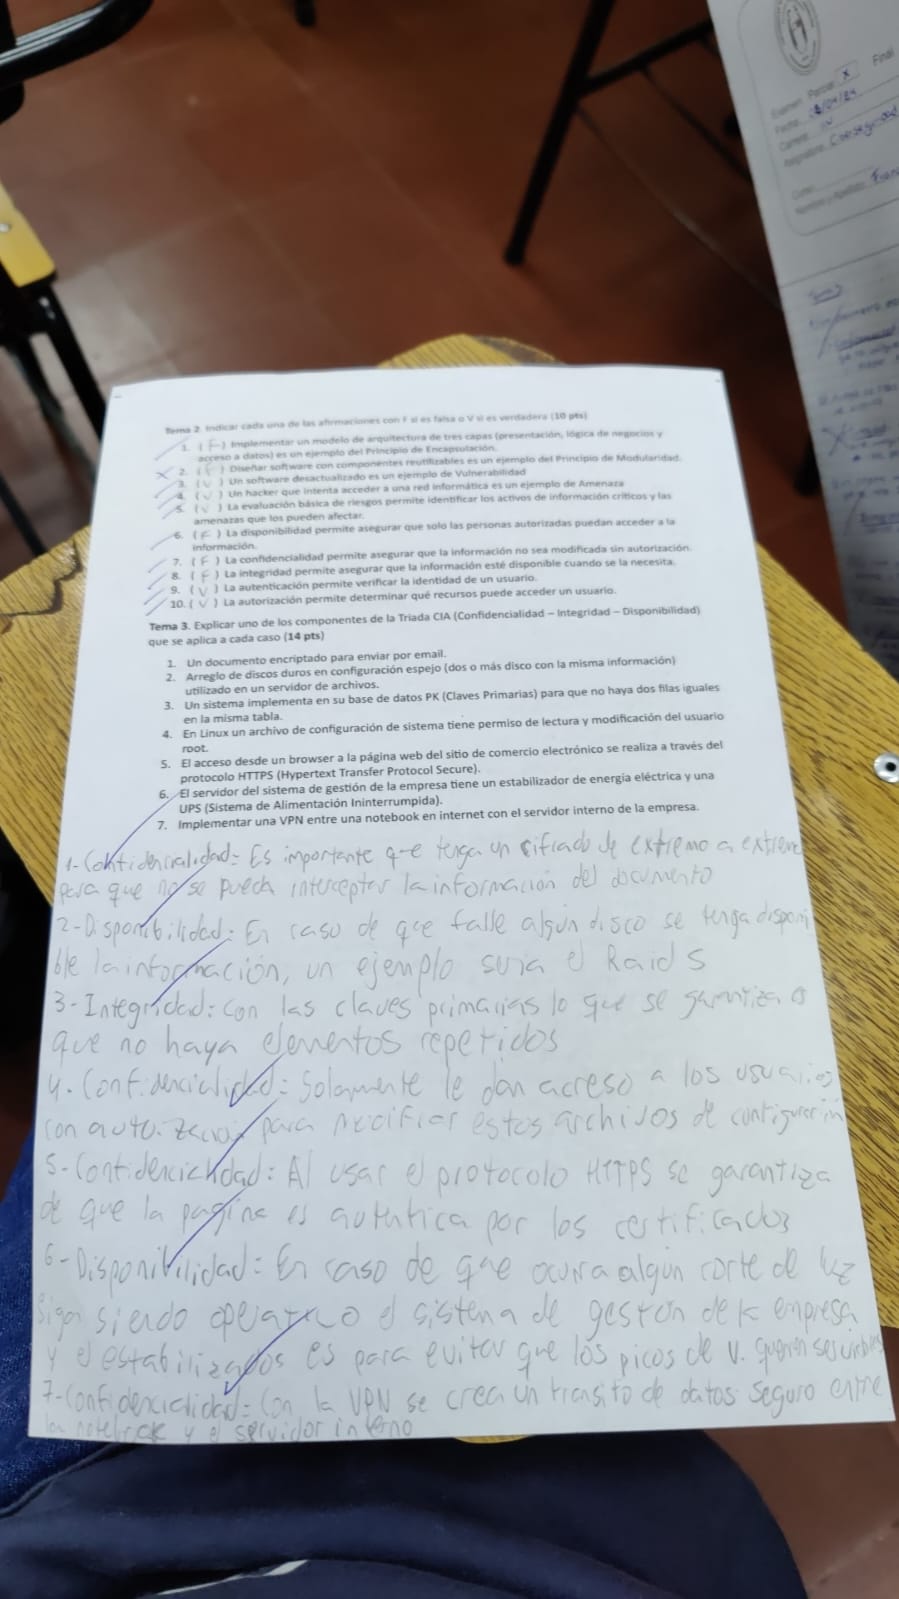 Examen Parcial X Final
Fecha
Carrera
Asignatura
Nombre y Apellido
Tema 2. Indicar cada una de las afirmaciones con F si es falsa o V si es verdadera (10 pts)
1. ( F ) Implementar un modelo de arquitectura de tres capas (presentación, lógica de negocios y
acceso a datos) es un ejemplo del Principio de Encapsulación.
2. ( F ) Diseñar software con componentes reutilizables es un ejemplo del Principio de Modularidad.
3. ( V ) Un software desactualizado es un ejemplo de Vulnerabilidad
4. ( V ) Un hacker que intenta acceder a una red informática es un ejemplo de Amenaza
5. ( V ) La evaluación básica de riesgos permite identificar los activos de información críticos y las
amenazas que los pueden afectar.
6. ( F ) La disponibilidad permite asegurar que solo las personas autorizadas puedan acceder a la
información.
7. ( F ) La confidencialidad permite asegurar que la información no sea modificada sin autorización.
8. ( F ) La integridad permite asegurar que la información esté disponible cuando se la necesita.
9. ( V ) La autenticación permite verificar la identidad de un usuario.
10. ( V ) La autorización permite determinar qué recursos puede acceder un usuario.
Tema 3. Explicar uno de los componentes de la Triada CIA (Confidencialidad – Integridad – Disponibilidad)
que se aplica a cada caso (14 pts)
1. Un documento encriptado para enviar por email.
2. Arreglo de discos duros en configuración espejo (dos o más disco con la misma información)
utilizado en un servidor de archivos.
3. Un sistema implementa en su base de datos PK (Claves Primarias) para que no haya dos filas iguales
en la misma tabla.
4. En Linux un archivo de configuración de sistema tiene permiso de lectura y modificación del usuario
root.
5. El acceso desde un browser a la página web del sitio de comercio electrónico se realiza a través del
protocolo HTTPS (Hypertext Transfer Protocol Secure).
6. El servidor del sistema de gestión de la empresa tiene un estabilizador de energía eléctrica y una
UPS (Sistema de Alimentación Ininterrumpida).
7. Implementar una VPN entre una notebook en internet con el servidor interno de la empresa.
1-Confidencialidad: Es importante que tenga un cifrado de extremo a extremo
para que no se pueda interceptar la información del documento
2-Disponibilidad: En caso de que falle algún disco se tenga disponi
ble la información, un ejemplo seria el Raid 5
3-Integridad: con las claves primarias lo que se garantiza es
que no haya elementos repetidos
4. Confidencialidad: Solamente le dan acceso a los usuarios
con autorización para modificar estos archivos de configuración
5-Confidencialidad: Al usar el protocolo HTTPS se garantiza
de que la pagina es autentica por los certificados
6-Disponibilidad: En caso de que ocurra algún corte de luz
siga siendo operativo el sistema de gestion de la empresa
y el estabilizados es para evitar que los picos de v. quemen servidores
7-Confidencialidad: Con la VPN se crea un transito de datos seguro entre
la notebook y el servidor interno